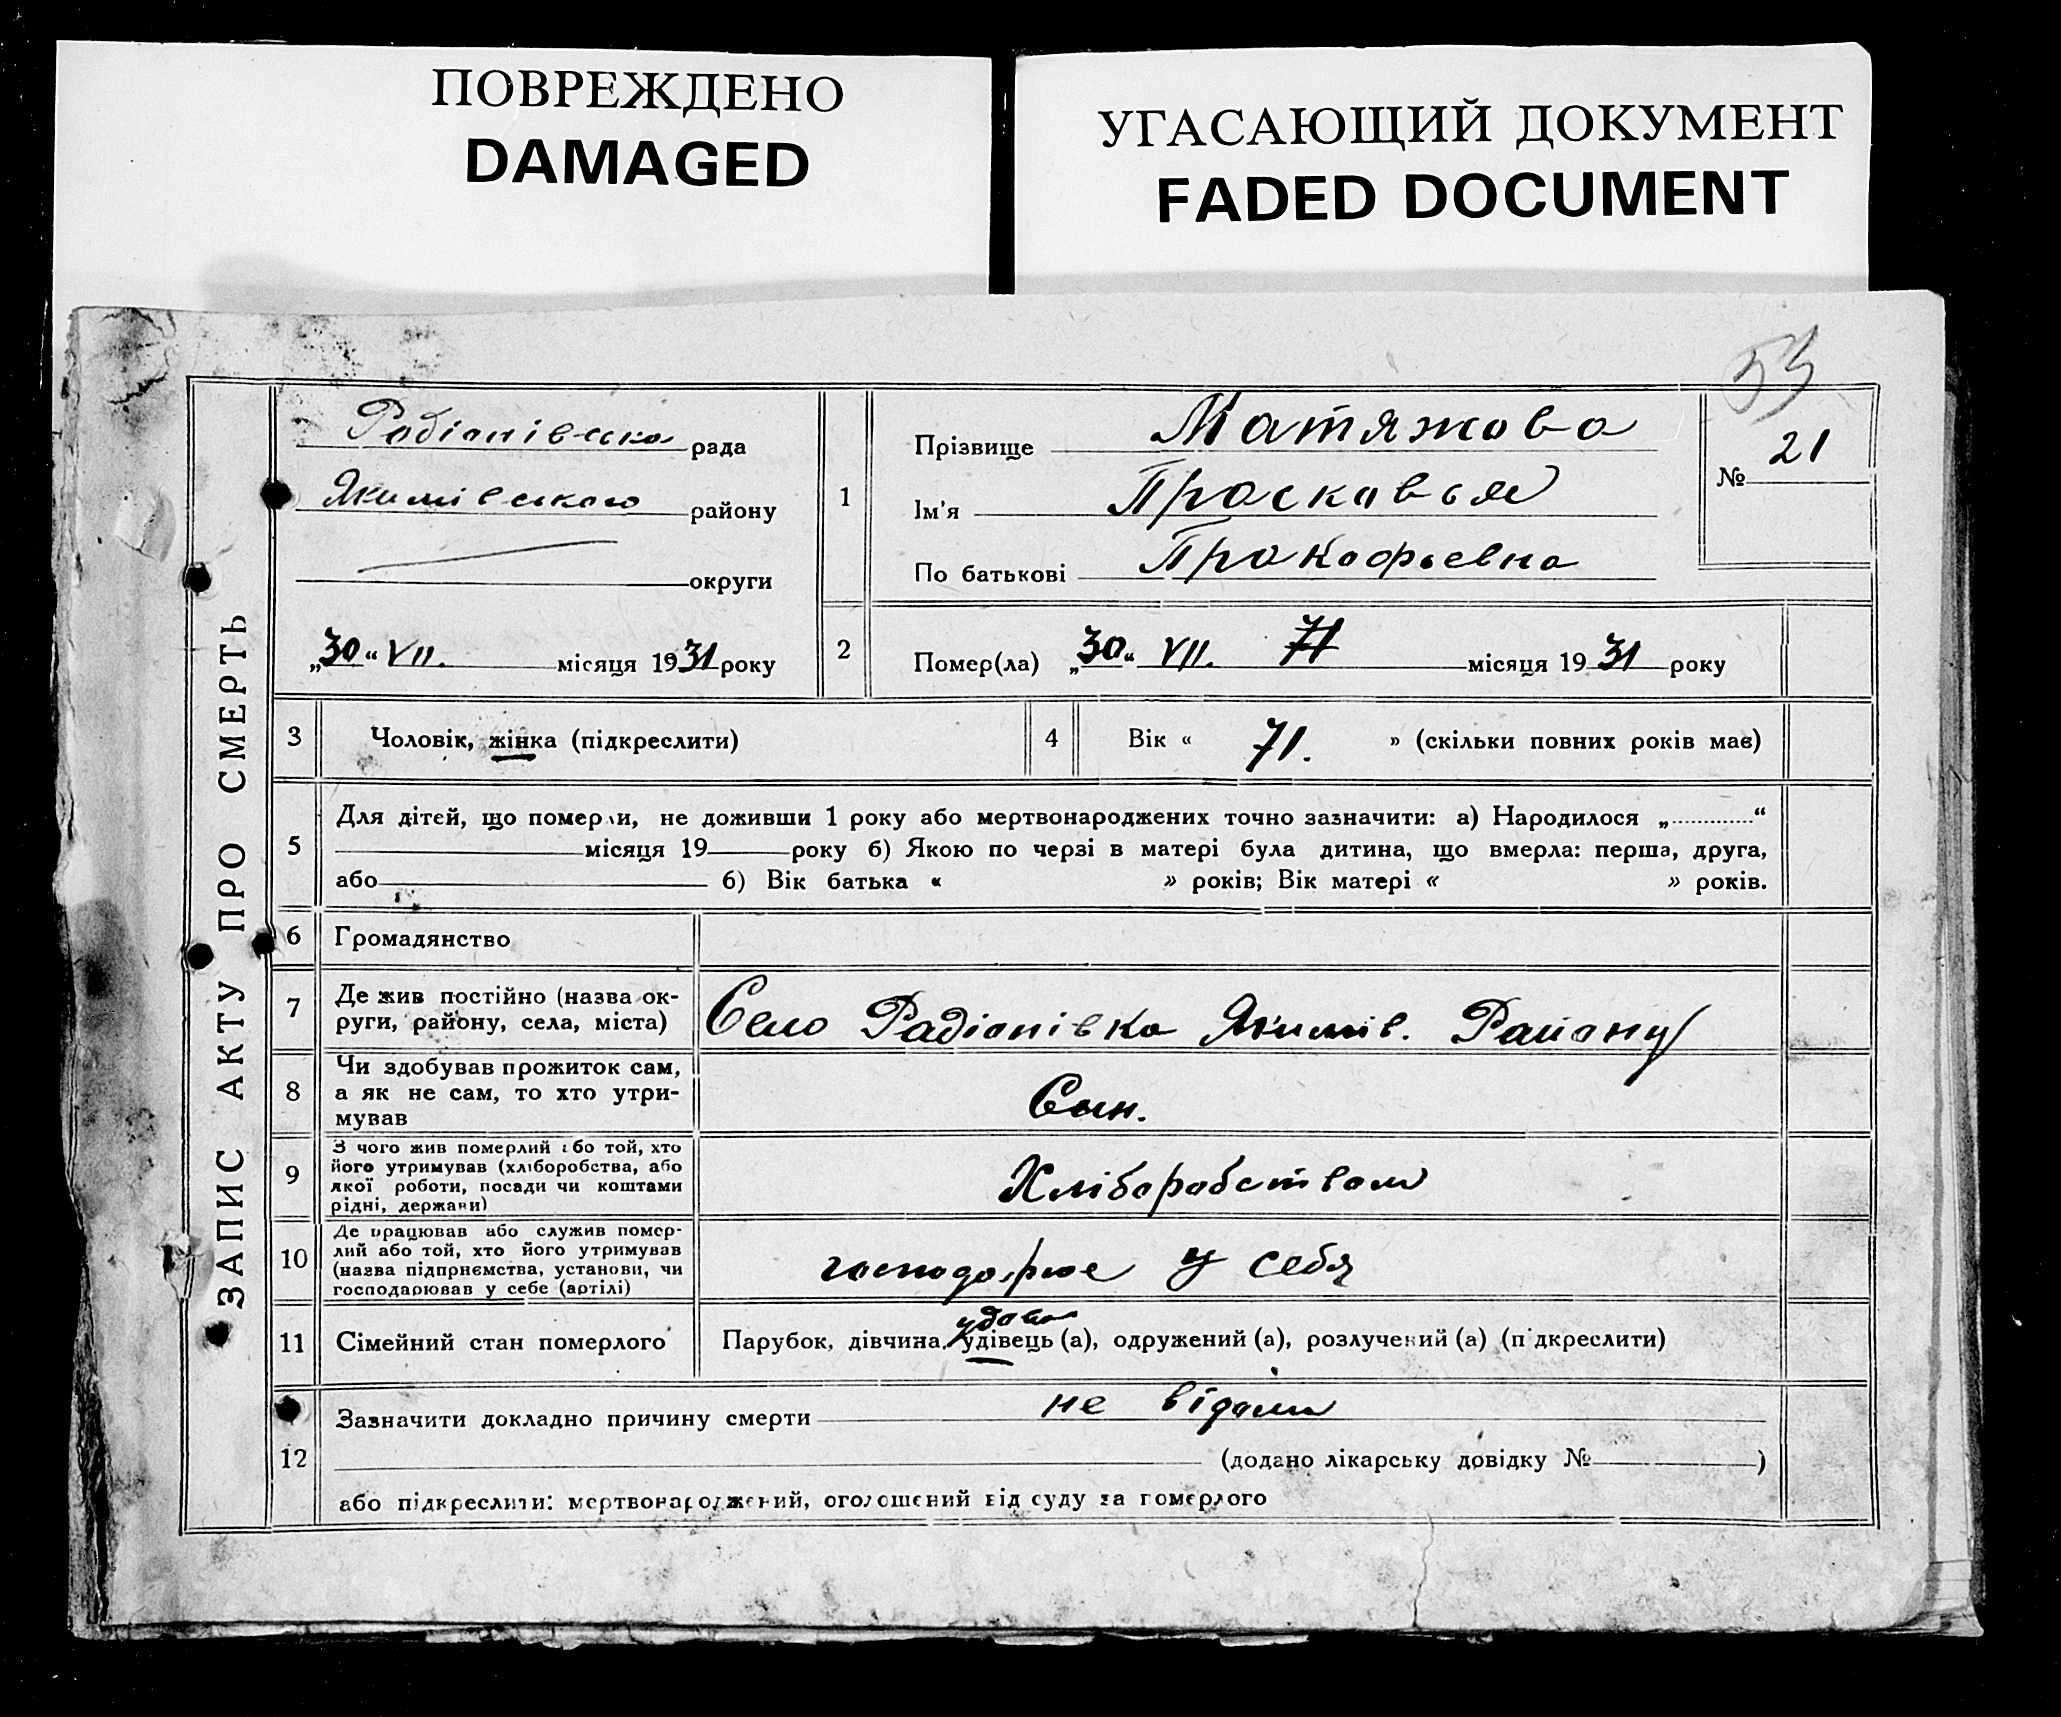 ПОВРЕЖДЕНО
DAMAGED
УГАСАЮЩИЙ ДОКУМЕНТ
FADED DOCUMENT
53
ЗАПИС АКТУ ПРО СМЕРТЬ
Радіонівська рада
Якимівського району
округи
„30“ VII. місяця 1931 року
1
Прізвище Матяжова
Ім'я Просковья
По батькові Прокофьевна
№ 21
2
Помер(ла) „30“ VII. 71 місяця 1931 року
3 Чоловік, жінка (підкреслити)
4 Вік « 71. » (скільки повних років має)
5
Для дітей, що померли, не доживши 1 року або мертвонароджених точно зазначити: а) Народилося „ “
місяця 19 року б) Якою по черзі в матері була дитина, що вмерла: перша, друга,
або б) Вік батька « » років; Вік матері « » років.
6 Громадянство
7
Де жив постійно (назва ок-
руги, району, села, міста)
Село Радіонівка Якимів. Району
8
Чи здобував прожиток сам,
а як не сам, то хто утри-
мував
Сын.
9
З чого жив померлий або той, хто
його утримував (хліборобства, або
якої роботи, посади чи коштами
рідні, держави)
Хліборобством
10
Де працював або служив помер-
лий або той, хто його утримував
(назва підприємства, установи, чи
господарював у себе (артілі)
господарює у себя
11 Сімейний стан померлого
удова
Парубок, дівчина, удівець (а), одружений (а), розлучений (а) (підкреслити)
12
Зазначити докладно причину смерти не відоми
(додано лікарську довідку № )
або підкреслити: мертвонароджений, оголошений від суду за померлого